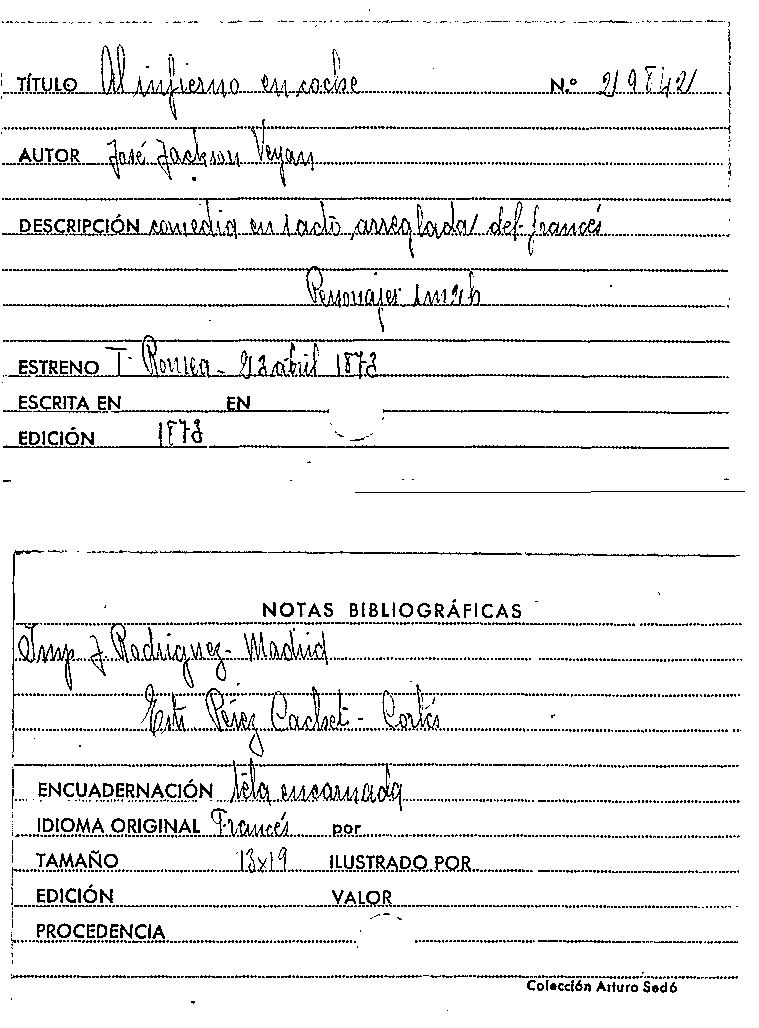 TÍTULO Al infierno en coche N.º 21984 21
AUTOR José Jackson Veyan
DESCRIPCIÓN comedia en 1 acto, arreglada del francés
Personajes 1m 2h
ESTRENO T. Romea - 23 abril 1873
ESCRITA EN EN
EDICIÓN 1873
NOTAS BIBLIOGRÁFICAS
Imp J. Rodriguez - Madrid
Pérez Cachet - Cortés
ENCUADERNACIÓN tela encarnada
IDIOMA ORIGINAL Francés por
TAMAÑO 13x19 ILUSTRADO POR
EDICIÓN VALOR
PROCEDENCIA
Colección Arturo Sedó